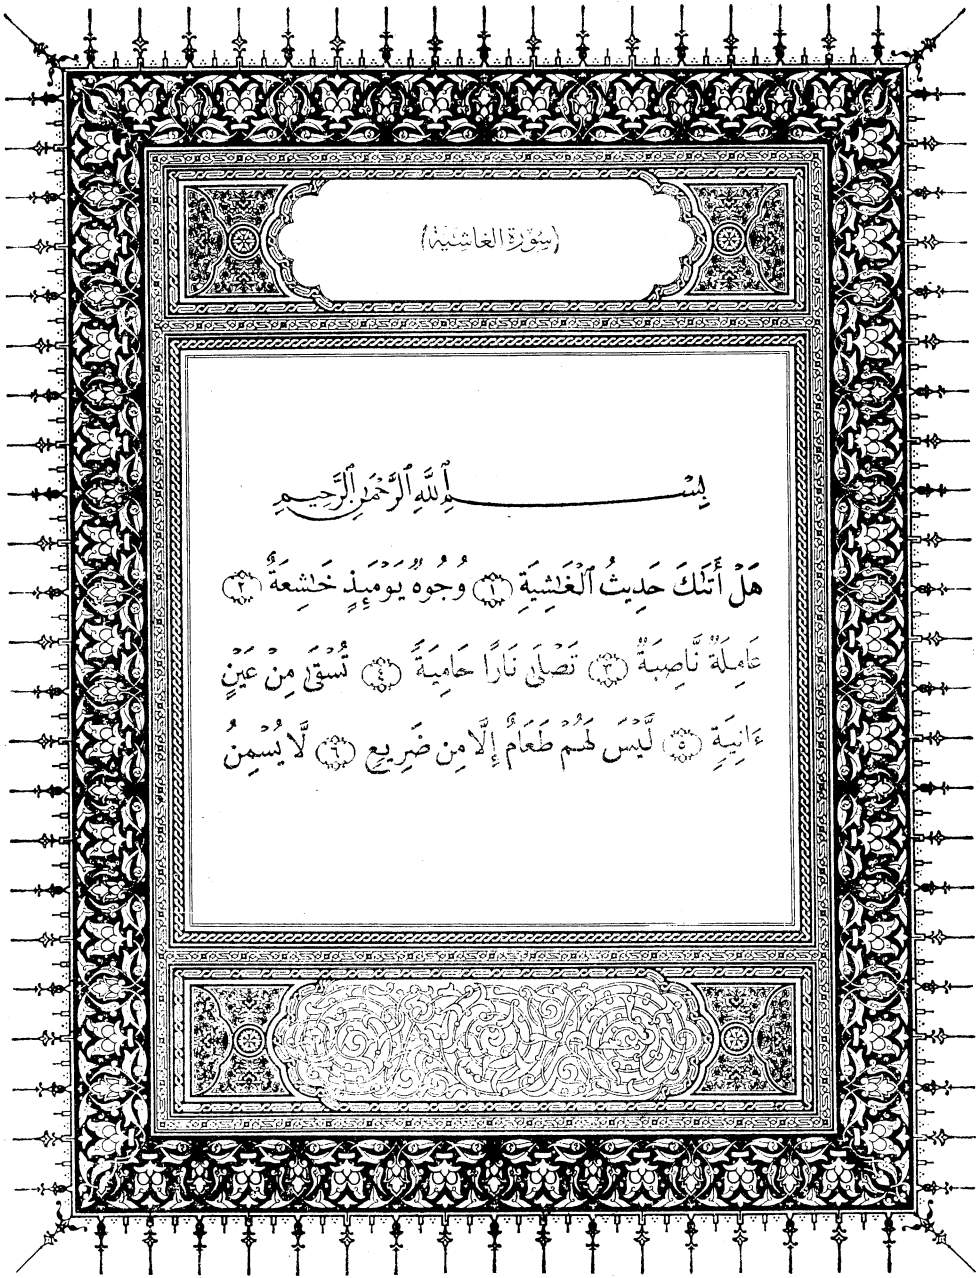 (سُورَة الغَاشِيَة)
بِسْمِ ٱللَّهِ ٱلرَّحْمَٰنِ ٱلرَّحِيمِ
هَلْ أَتَىٰكَ حَدِيثُ ٱلْغَٰشِيَةِ ١ وُجُوهٌ يَوْمَئِذٍ خَٰشِعَةٌ ٢
عَامِلَةٌ نَّاصِبَةٌ ٣ تَصْلَىٰ نَارًا حَامِيَةً ٤ تُسْقَىٰ مِنْ عَيْنٍ
ءَانِيَةٍ ٥ لَّيْسَ لَهُمْ طَعَامٌ إِلَّا مِن ضَرِيعٍ ٦ لَّا يُسْمِنُ